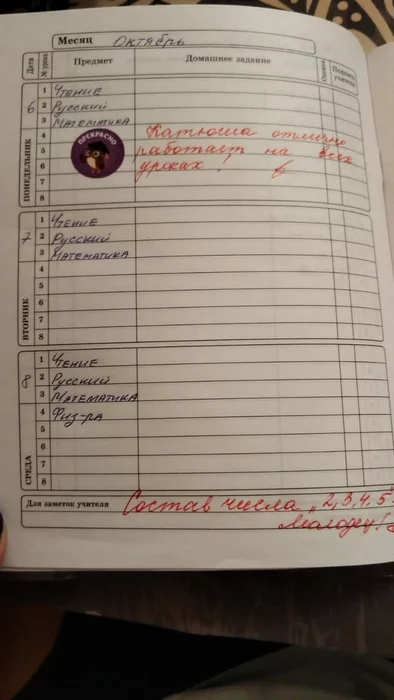 Месяц Октябрь
Дата № урока Предмет Домашнее задание Оценка Подпись учителя
ПОНЕДЕЛЬНИК 6
1 Чтение
2 Русский
3 Математика
4 Катюша отлично
ПРЕКРАСНО
5 работает на всех
6 уроках.
7
8
ВТОРНИК 7
1 Чтение
2 Русский
3 Математика
4
5
6
7
8
СРЕДА 8
1 Чтение
2 Русский
3 Математика
4 Физ-ра
5
6
7
8
Для заметок учителя Состав числа 2,3,4,5
Молодец!